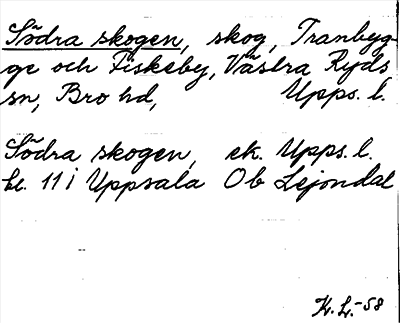 Södra skogen, skog, Tranbyg-
ge och Fiskeby, Västra Ryds
sn, Bro hd, Upps. l.
Södra skogen, ek. Upps. l.
bl. 11 i Uppsala Ob Lejondal
K. L. -58